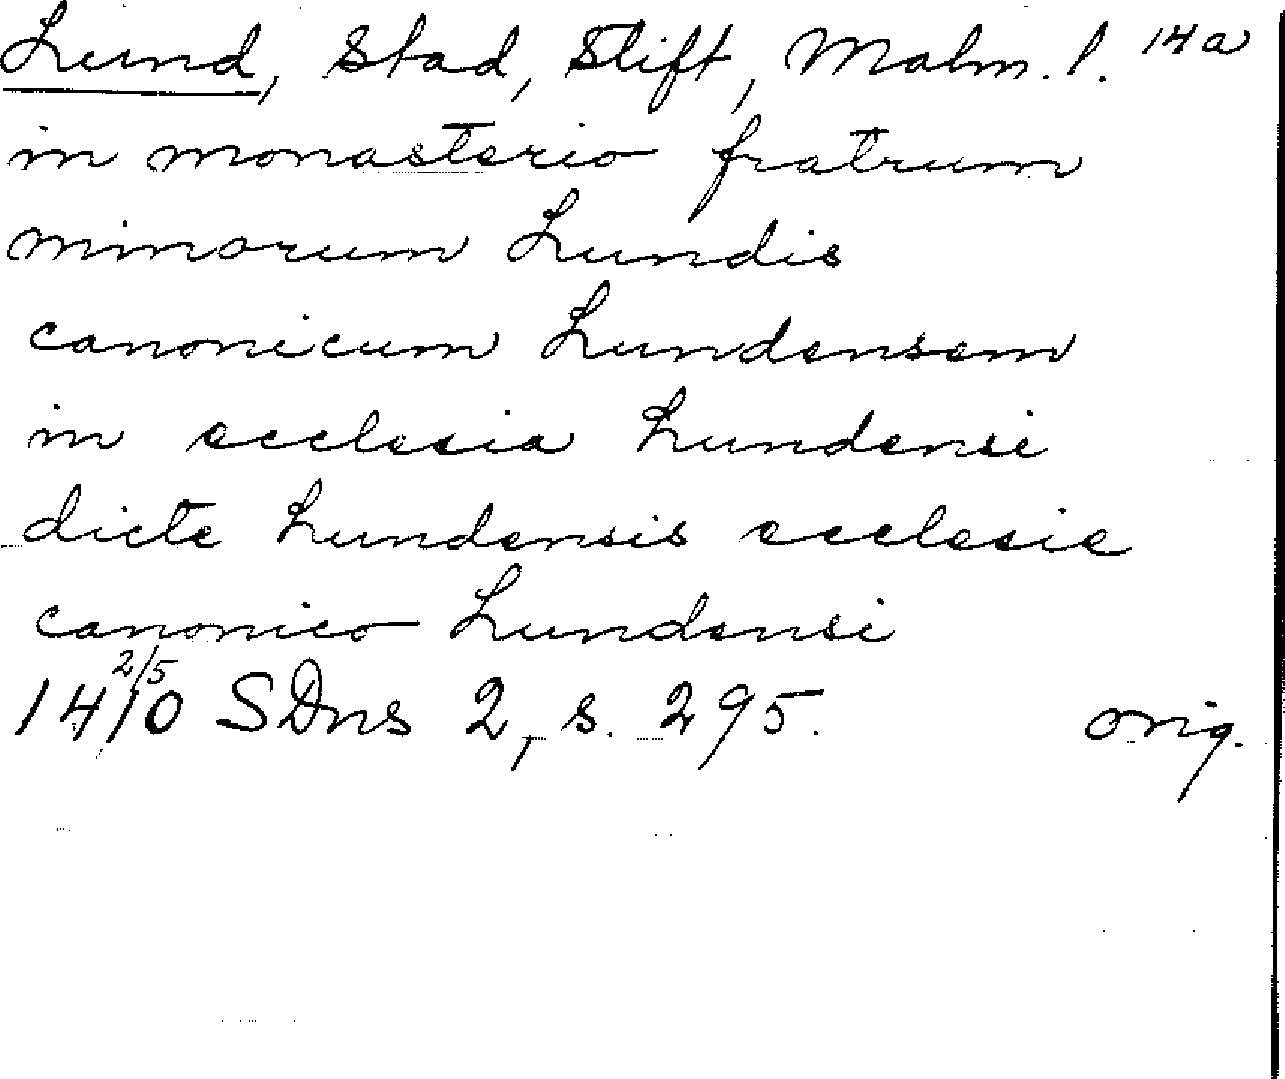 Lund, Stad, Stift, Malm. l. 14a
in monasterio fratrum
minorum Lundis
canonicum Lundensem
in ecclesia Lundensi
dicte Lundensis ecclesie
canonico Lundensi
1410 2/5 SDns 2, s. 295. orig.